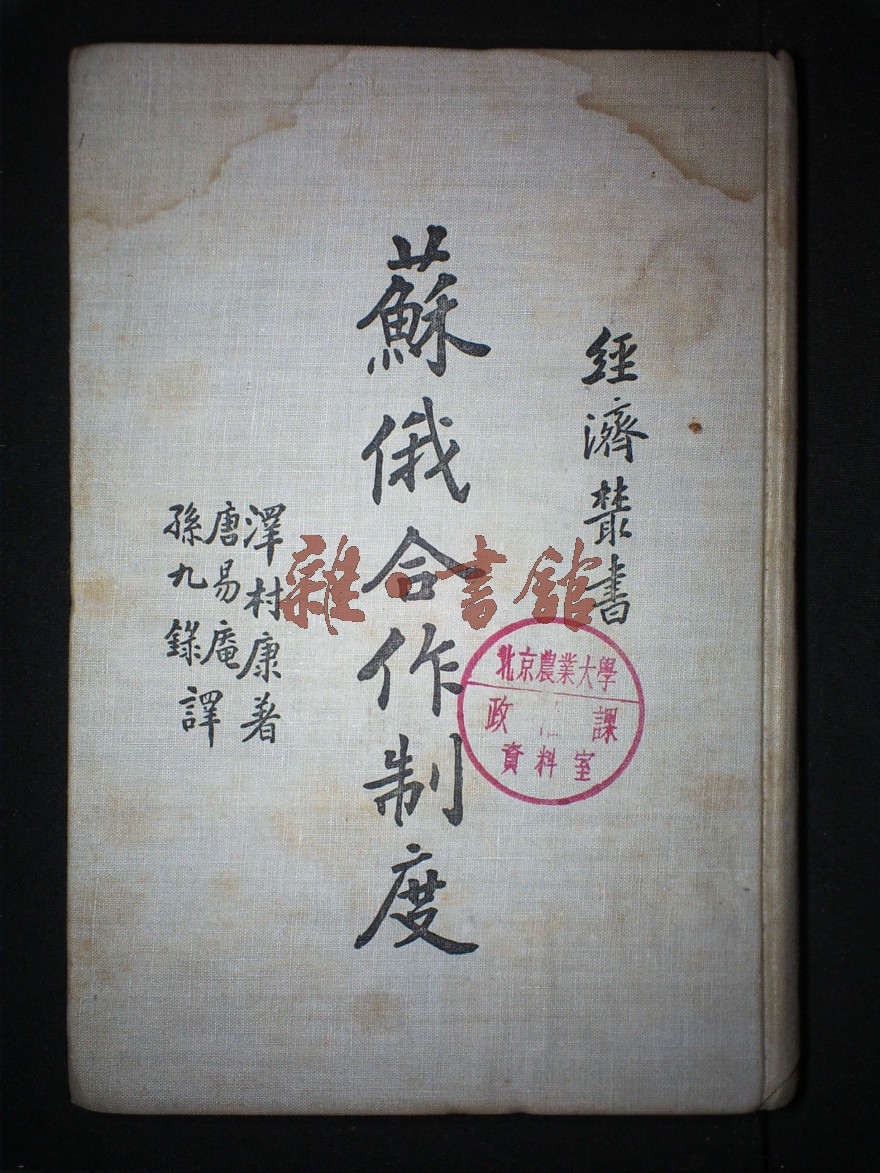 經濟叢書
蘇俄合作制度
澤村康著
唐易庵
孫九錄譯
雜書館
北京農業大學
政 課
資料室